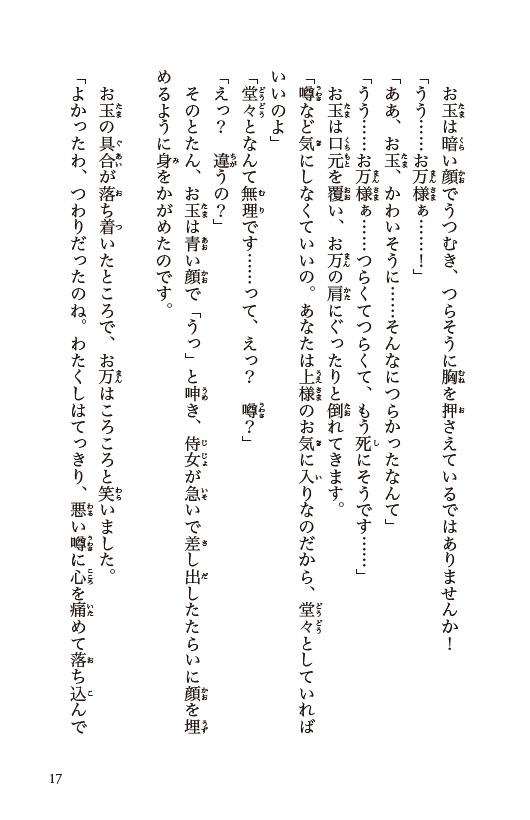 お玉は暗い顔でうつむき、つらそうに胸を押さえているではありませんか！
「うう……お万様ぁ……！」
「ああ、お玉、かわいそうに……そんなにつらかったなんて」
「うう……お万様ぁ……つらくてつらくて、もう死にそうです……」
お玉は口元を覆い、お万の肩にぐったりと倒れてきます。
「噂など気にしなくていいの。あなたは上様のお気に入りなのだから、堂々としていれば
いいのよ」
「堂々となんて無理です……って、えっ？　噂？」
「えっ？　違うの？」
そのとたん、お玉は青い顔で「うっ」と呻き、侍女が急いで差し出したたらいに顔を埋
めるように身をかがめたのです。
お玉の具合が落ち着いたところで、お万はころころと笑いました。
「よかったわ、つわりだったのね。わたくしはてっきり、悪い噂に心を痛めて落ち込んで
17